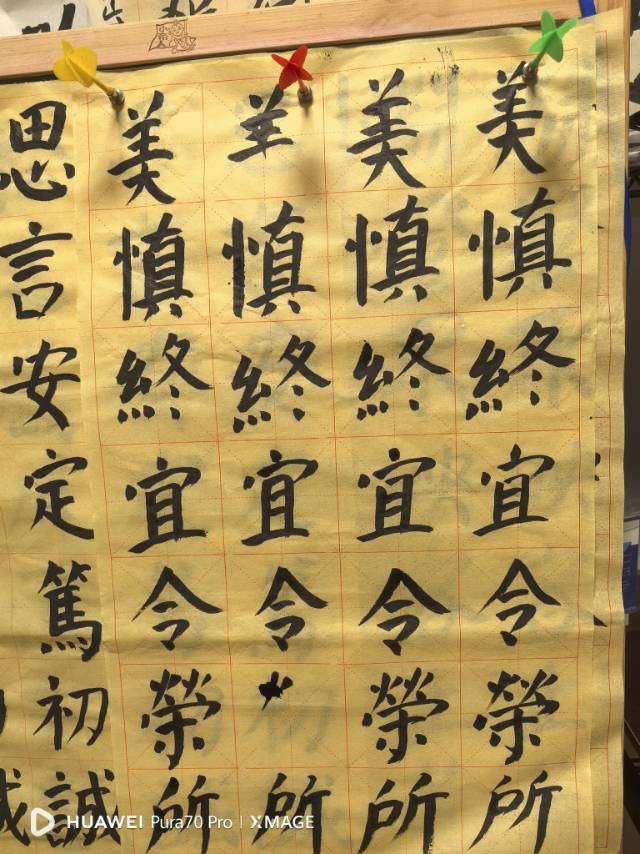 美慎終宜令榮所
美慎終宜令榮所
慎終宜令所
美慎終宜令榮所
思言安定篤初誠
HUAWEI Pura70 Pro | XMAGE